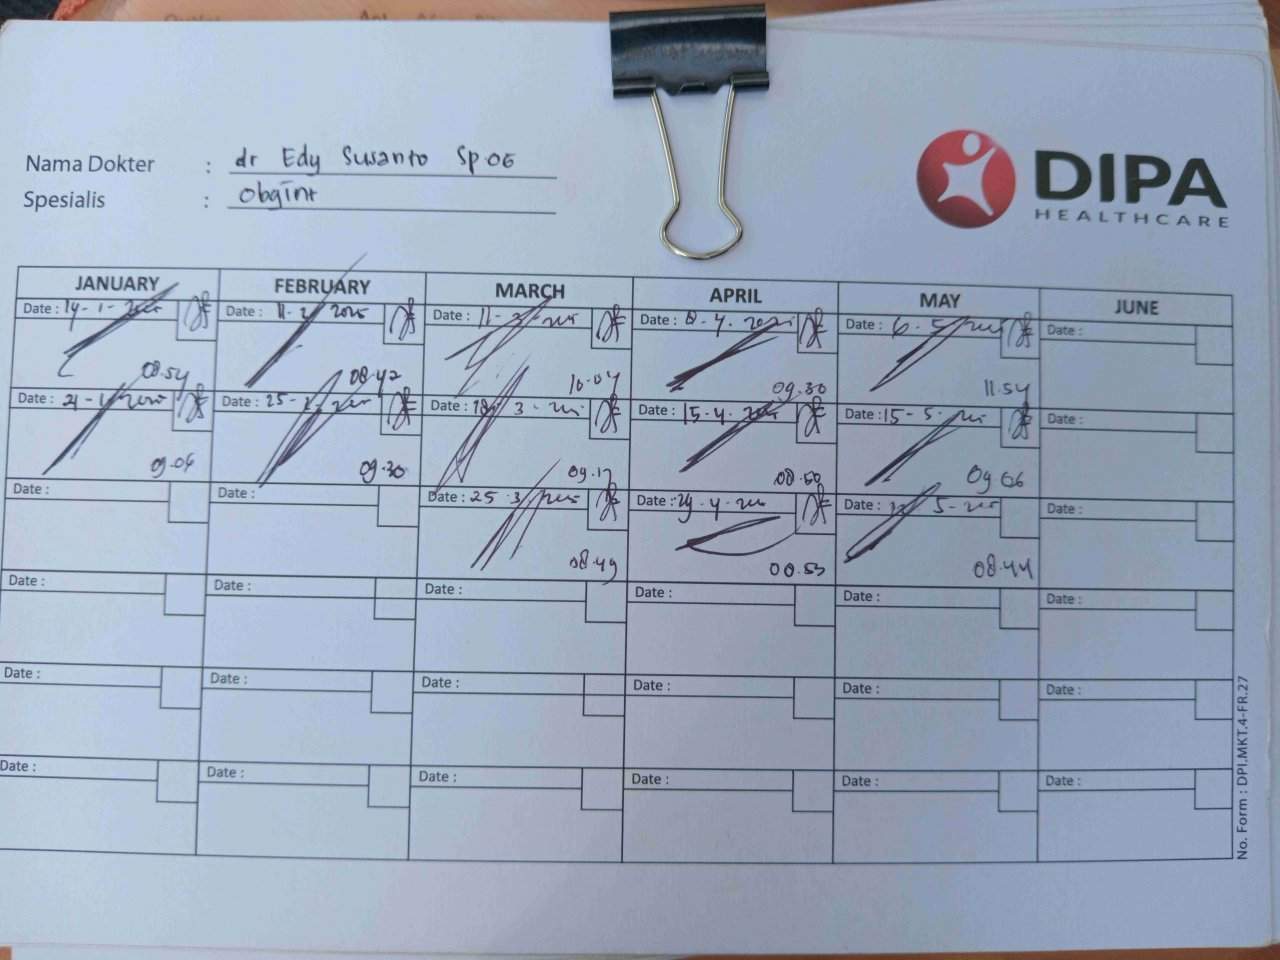 Nama Dokter : dr Edy Susanto Sp.OG
Spesialis : Obgint
DIPA
HEALTHCARE
JANUARY FEBRUARY MARCH APRIL MAY JUNE
Date : 14-1- Date : 11-2 2025 Date : 11-3- Date : 8-4. Date : 6-5 Date :
08.54 08.42 10.07 09.30 11.54
Date : 21- Date : 25- Date : 18 3- Date : 15-4. Date : 15-5- Date :
09.06 09.30 09.17 08.50 09 06
Date : Date : Date : 25 3 Date : 29-4- Date : 5- Date :
08.49 08.53 08.44
Date : Date : Date : Date : Date : Date :
Date : Date : Date : Date : Date : Date :
Date : Date : Date : Date : Date : Date :
No. Form : DPI.MKT.4-FR.27